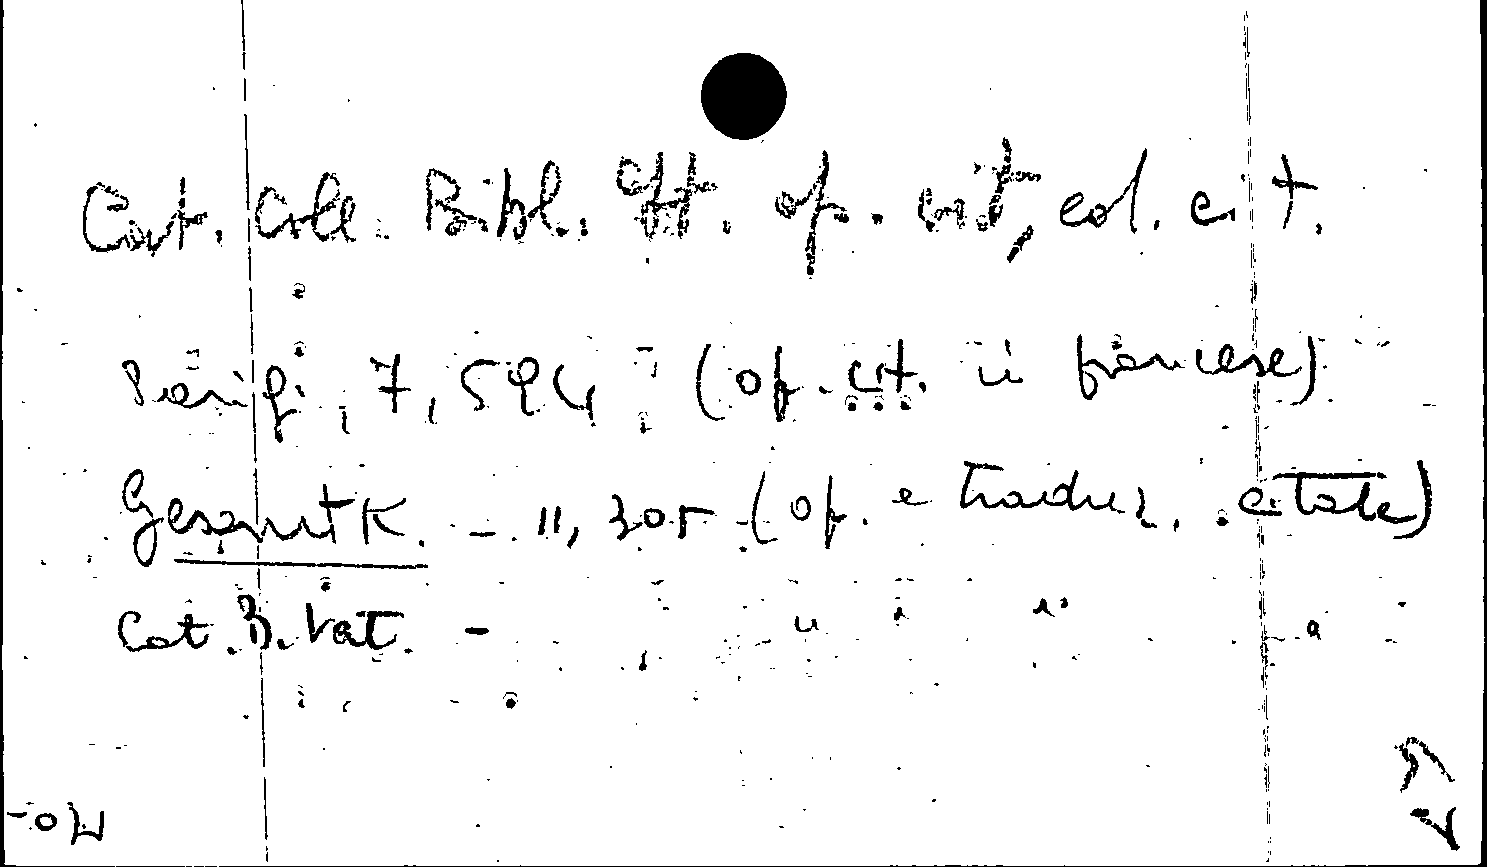 Cat. Coll. Bibl. Aff. op. cit, col. cit.
Parigi, 7, 594 (op. cit. in francese)
Gesamtk. - 11, 305 (op. e traduz. citate)
Cat. B. Vat. - " " " "